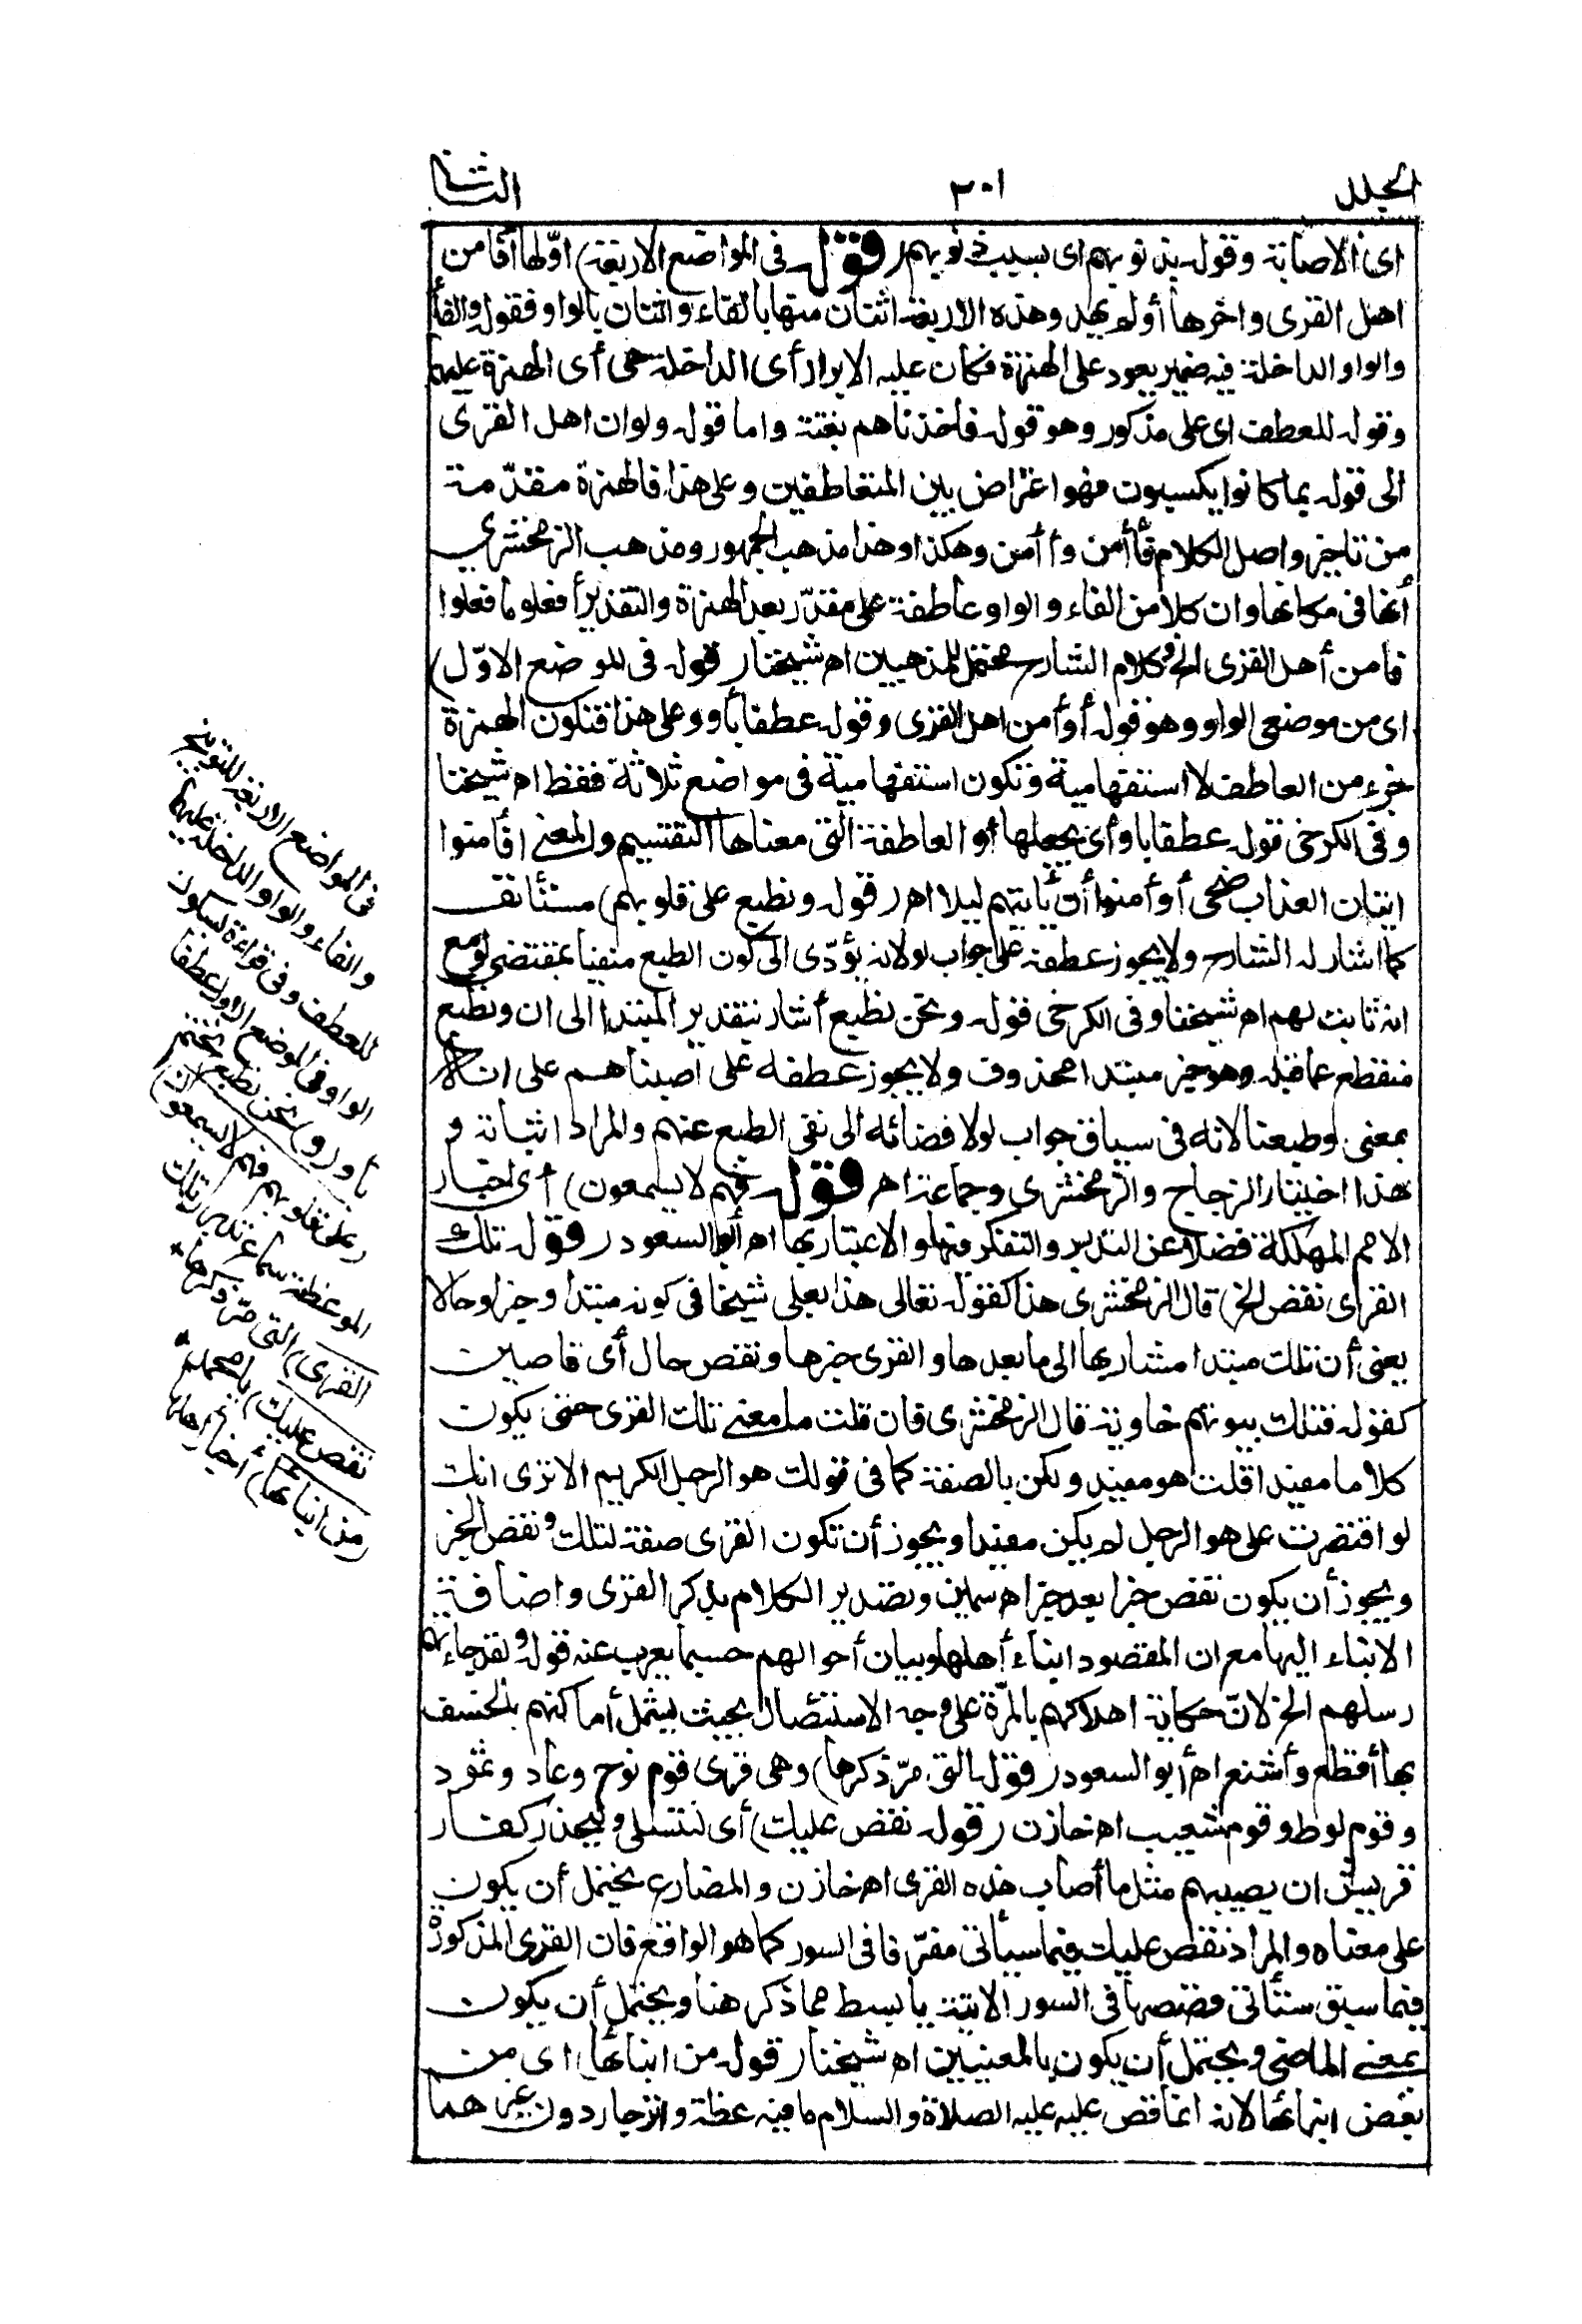 المجلد
٣٠١
الثانى
اى الاصابة وقوله بذنوبهم اى بسبب ذنوبهم (قوله فى المواضع الاربعة) اوّلها أفأمن
اهل القرى واخرها أو لم يهد وهذه الاربعة اثنتان منها بالفاء واثنتان بالواو فقوله والفاء
والواو الداخلة فيه ضمير يعود على الهمزة فكان عليه الابراز أى الداخلة هى أى الهمزة عليهما
وقوله للعطف اى على مذكور وهو قوله فأخذناهم بغتة واما قوله ولو ان اهل القرى
الى قوله بما كانوا يكسبون فهو اعتراض بين المتعاطفين وعلى هذا فالهمزة مقدّمة
من تاخير واصل الكلام فأأمن وأأمن وهكذا وهذا مذهب الجمهور ومذهب الزمخشرى
أنها فى مكانها وان كلا من الفاء والواو عاطفة على مقدّر بعد الهمزة والتقدير أفعلوا ما فعلوا
فأمن أهل القرى الخ وكلام الشارح محتمل للمذهبين اه شيخنا (قوله فى الموضع الاوّل)
اى من موضعى الواو وهو قوله أو أمن اهل القرى وقوله عطفا بأو وعلى هذا فتكون الهمزة
جزء من العاطف لا استفهامية وتكون استفهامية فى مواضع ثلاثة فقط اه شيخنا
وفى الكرخى قوله عطفا بأو أى بجعلها أو العاطفة التى معناها التقسيم والمعنى أفأمنوا
اتيان العذاب ضحى أو أمنوا أن يأتيهم ليلا اه (قوله ونطبع على قلوبهم) مستأنف
كما اشار له الشارح ولا يجوز عطفه على جواب لو لانه يؤدّى الى كون الطبع منفيا بمقتضى لو مع
انه ثابت لهم اه شيخنا وفى الكرخى قوله ونحن نطبع أشار بتقدير المبتدا الى ان ونطبع
منقطع عما قبله وهو خبر مبتدا محذوف ولا يجوز عطفه على أصبناهم على انه
بمعنى وطبعنا لانه فى سياق جواب لو لافضائه الى نفى الطبع عنهم والمراد اثباته و
هذا اختيار الزجاج والزمخشرى وجماعة اه (قوله فهم لا يسمعون) أى اخبار
الامم المهلكة فضلا عن التدبر والتفكر فيها والاعتبار بها اه أبو السعود (قوله تلك
القرى نقص الخ) قال الزمخشرى هذا كقوله تعالى هذا بعلى شيخا فى كونه مبتدأ وخبرا وحالا
يعنى أن تلك مبتدا مشار بها الى ما بعدها والقرى خبرها ونقص حال أى قاصين
كقوله فتلك بيوتهم خاوية قال الزمخشرى فان قلت ما معنى تلك القرى حتى يكون
كلاما مفيدا قلت هو مفيد ولكن بالصفة كما فى قولك هو الرجل الكريم الا ترى انك
لو اقتصرت على هو الرجل لم يكن مفيدا ويجوز أن تكون القرى صفة لتلك ونقص الخبر
ويجوز أن يكون نقص خبرا بعد خبر اه سمين وتصدير الكلام بذكر القرى واضافة
الانباء اليها مع ان المقصود انباء أهلها وبيان أحوالهم حسبما يعرب عنه قوله ولقد جاءتهم
رسلهم الخ لانّ حكاية اهلاكهم بالمرّة على وجه الاستئصال بحيث يشمل أماكنهم بالخسف
بها أفظع وأشنع اه أبو السعود (قوله التى مرّ ذكرها) وهى قرى قوم نوح وعاد وثمود
وقوم لوط وقوم شعيب اه خازن (قوله نقص عليك) أى لتتسلى وليحذر كفار
قريش ان يصيبهم مثل ما أصاب هذه القرى اه خازن والمضارع يحتمل أن يكون
على معناه والمراد نقص عليك فيما سيأتى مفرّقا فى السور كما هو الواقع فان القرى المذكورة
فيما سبق ستأتى قصتها فى السور الاتية بابسط مما ذكر هنا ويحتمل أن يكون
بمعنى الماضى ويحتمل أن يكون بالمعنيين اه شيخنا (قوله من انبائها) اى من
بعض انبائها لانه انما قص عليه عليه الصلاة والسلام ما فيه عظة وانزجار دون غيرهما
فى المواضع الاربعة للتوبيخ
والفاء والواو الداخلة عليهما
للعطف وفى قراءة بسكون
الواو فى الموضع الاول عطفا
بأو (و) نحن نطبع نختم
على قلوبهم فهم لا يسمعون
الموعظة سماع تدبر تلك
القرى) التى مرّ ذكرها
نقص عليك) يا محمد
من انبائها) أخبار أهلها